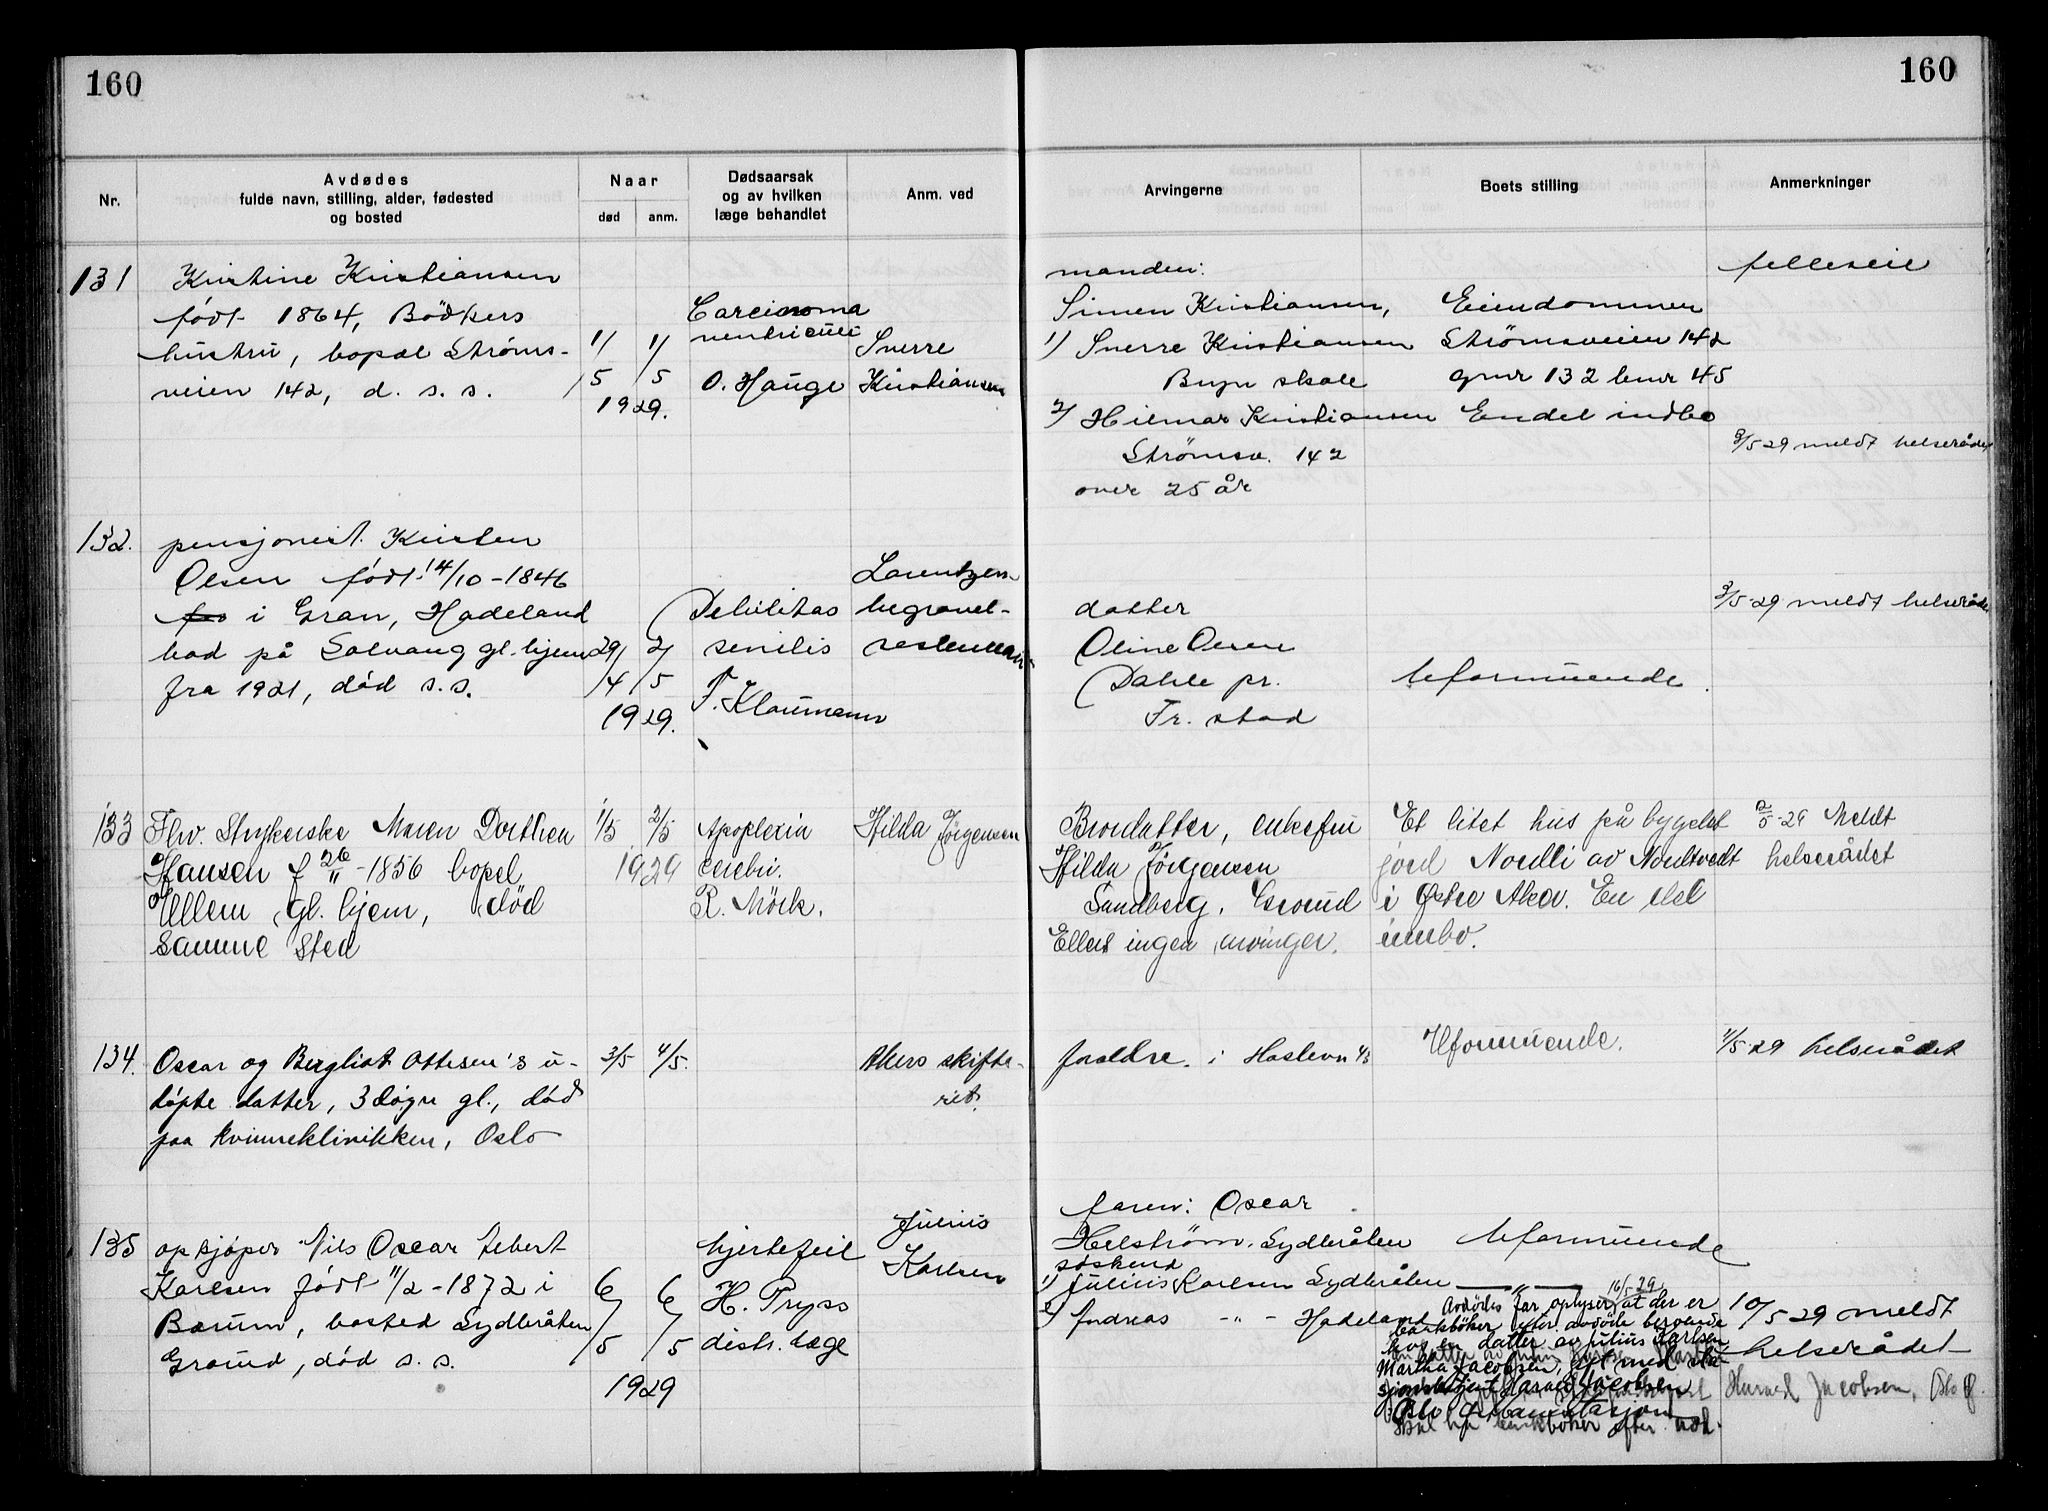 160
160
Nr.
Avdødes
fulde navn, stilling, alder, fødested
og bosted
Naar
død
anm.
Dødsaarsak
og av hvilken
læge behandlet
Anm. ved
Arvingerne
Boets stilling
Anmerkninger
131
Kristine Kristiansen
født 1864, Bödkers
hustru, bopæl Strøms-
veien 142, d. s. s.
1/5
1/5
1929.
Carcinoma
ventriculi
O. Hauge
Sverre
Kristiansen
manden:
Simen Kristiansen,
1) Sverre Kristiansen
Bryn skole
2) Hilmar Kristiansen
Strømsv. 142
over 25 år
Eiendommen
Strømsveien 142
gnr 132 bnr 45
Endel indbo
felleseie
3/5 29 meldt helserådet
132.
pensjonist Kristen
Olsen født 14/10-1846
i Gran, Hadeland
bod på Solvang gl. hjem
fra 1921, død s.s.
29/4
2/5
1929.
Debilitas
senilis
F. Klaumann
Lorentzen
begravel-
datter
Oline Olsen
Dahle pr.
Fr. stad
Uformuende.
3/5-29 meldt helserådet
133
Fhv. Strykerske Maren Dorthea
Hansen f 26/11-1856 bopel
Ullern gl. hjem, død
samme sted
1/5
2/5
1929
Apoplexia
cerebri.
R. Mörk.
Hilda Jørgensen
Brordatter, enkefru
Hilda Jørgensen
Sandberg, Grorud
Ellers ingen arvinger.
Et litet hus på bygslet
jord Nordli av Nordtvedt
i Østre Aker. En del
innbo.
2/5-29 Meldt
helserådet
134.
Oscar og Bergliot Ottesen's u-
døpte datter, 3 døgn gl., død
paa Kvinneklinikken, Oslo
3/5
4/5.
Akers skifte-
ret.
foreldre. i Haslevn
Uformuende.
4/5-29 helserådet
135
opkjøper Nils Oscar
Karlsen født 11/2-1872 i
Bærum, bosted Sydbråten
Grorud, død s. s.
6/5
6/5
1929
hjertefeil
H. Pryss
distr. læge
Julius
Karlsen
faren: Oscar
Helstrøm. Sydbråten
søskend
1) Julius Karlsen Sydbråten
2) Andreas -"- - Hadeland
Uformuende
— " —
16/5 29
Avdødes far oplyser, at der er
bankbøker efter avdøde beroende
hos en datter av Julius Karlsen
Martha Jacobsen, gift med sta-
Jacobsen
10/5 29 meldt
helserådet
Jacobsen,